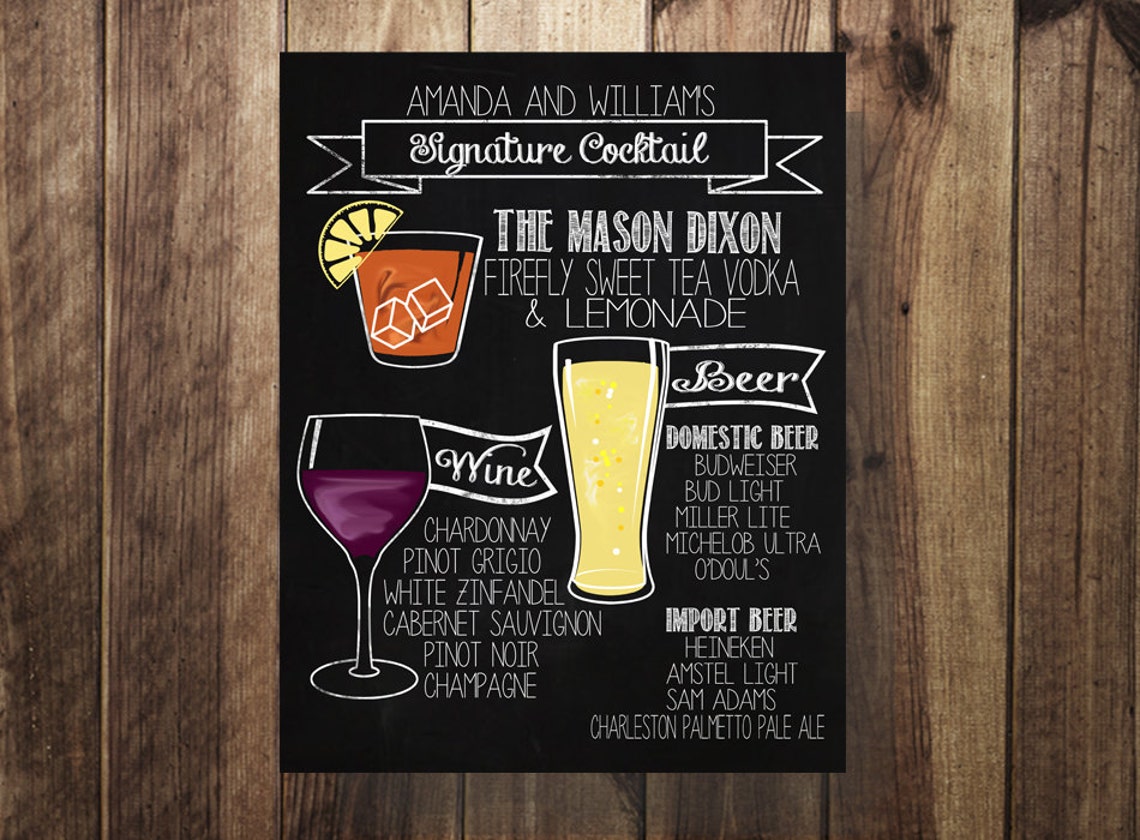 AMANDA AND WILLIAMS
Signature Cocktail
THE MASON DIXON
FIREFLY SWEET TEA VODKA
& LEMONADE
Beer
DOMESTIC BEER
BUDWEISER
BUD LIGHT
MILLER LITE
MICHELOB ULTRA
O'DOUL'S
Wine
CHARDONNAY
PINOT GRIGIO
WHITE ZINFANDEL
CABERNET SAUVIGNON
PINOT NOIR
CHAMPAGNE
IMPORT BEER
HEINEKEN
AMSTEL LIGHT
SAM ADAMS
CHARLESTON PALMETTO PALE ALE